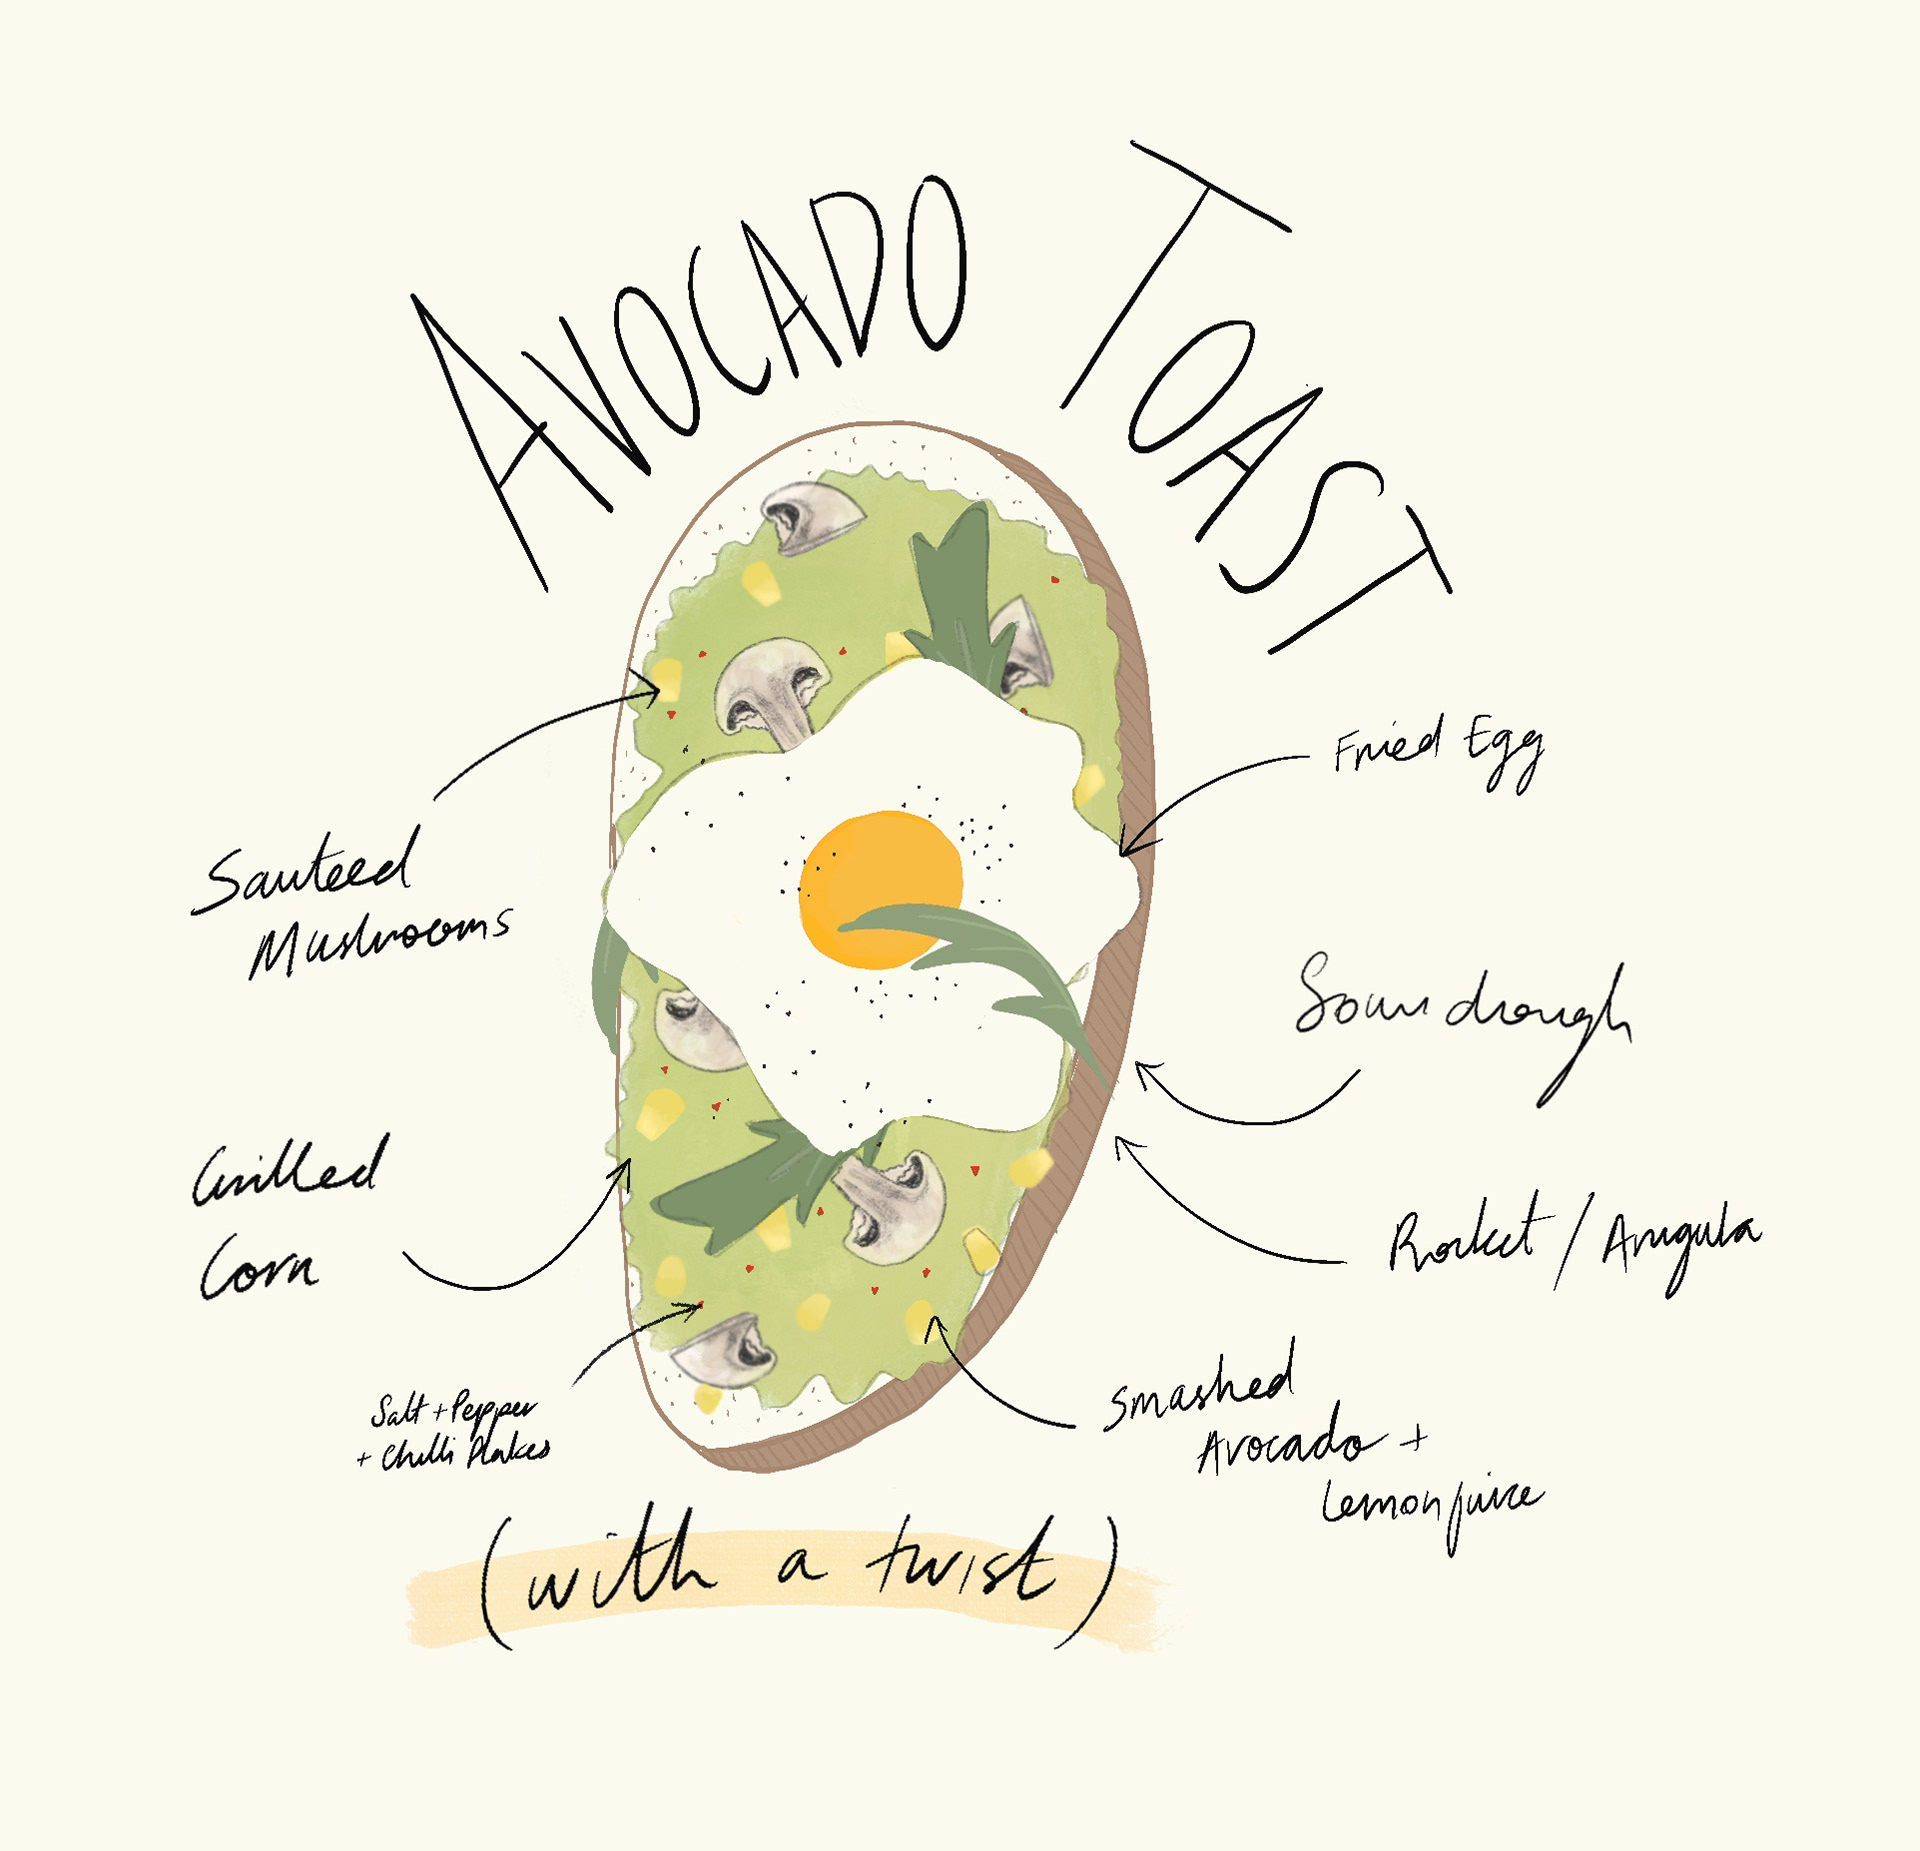 AVOCADO TOAST
Fried Egg
Sauteed
Mushrooms
Sourdrough
Grilled
Corn
Rocket / Arugula
Salt + Pepper
+ Chilli flakes
Smashed
Avocado +
Lemon juice
(with a twist)